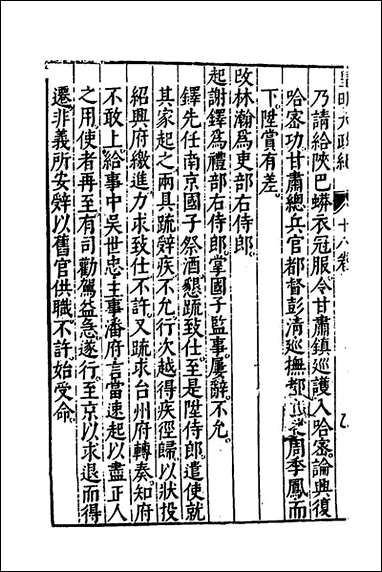 皇明大政紀 十八卷
乃請給陝巴蟒衣冠服。令甘肅鎮巡護入哈密。論興復
哈密功。甘肅總兵官都督彭清巡撫都御史周季鳳而
下。陞賞有差。
改林瀚爲吏部右侍郎。
起謝鐸爲禮部右侍郎。掌國子監事。屢辭。不允。
鐸先任南京國子祭酒。懇疏致仕。至是陞侍郎。遣使就
其家起之。兩具疏辭疾。不允行。次越得疾徑歸。以狀投
紹興府繳進。力求致仕。不許。又疏求台州府轉奏。知府
不敢上。給事中吳世忠。主事潘府言當速起以盡正人
之用。使者再至。有司勸駕益急。遂行。至京以求退而得
遷。非義所安。辭以舊官供職。不許。始受命。